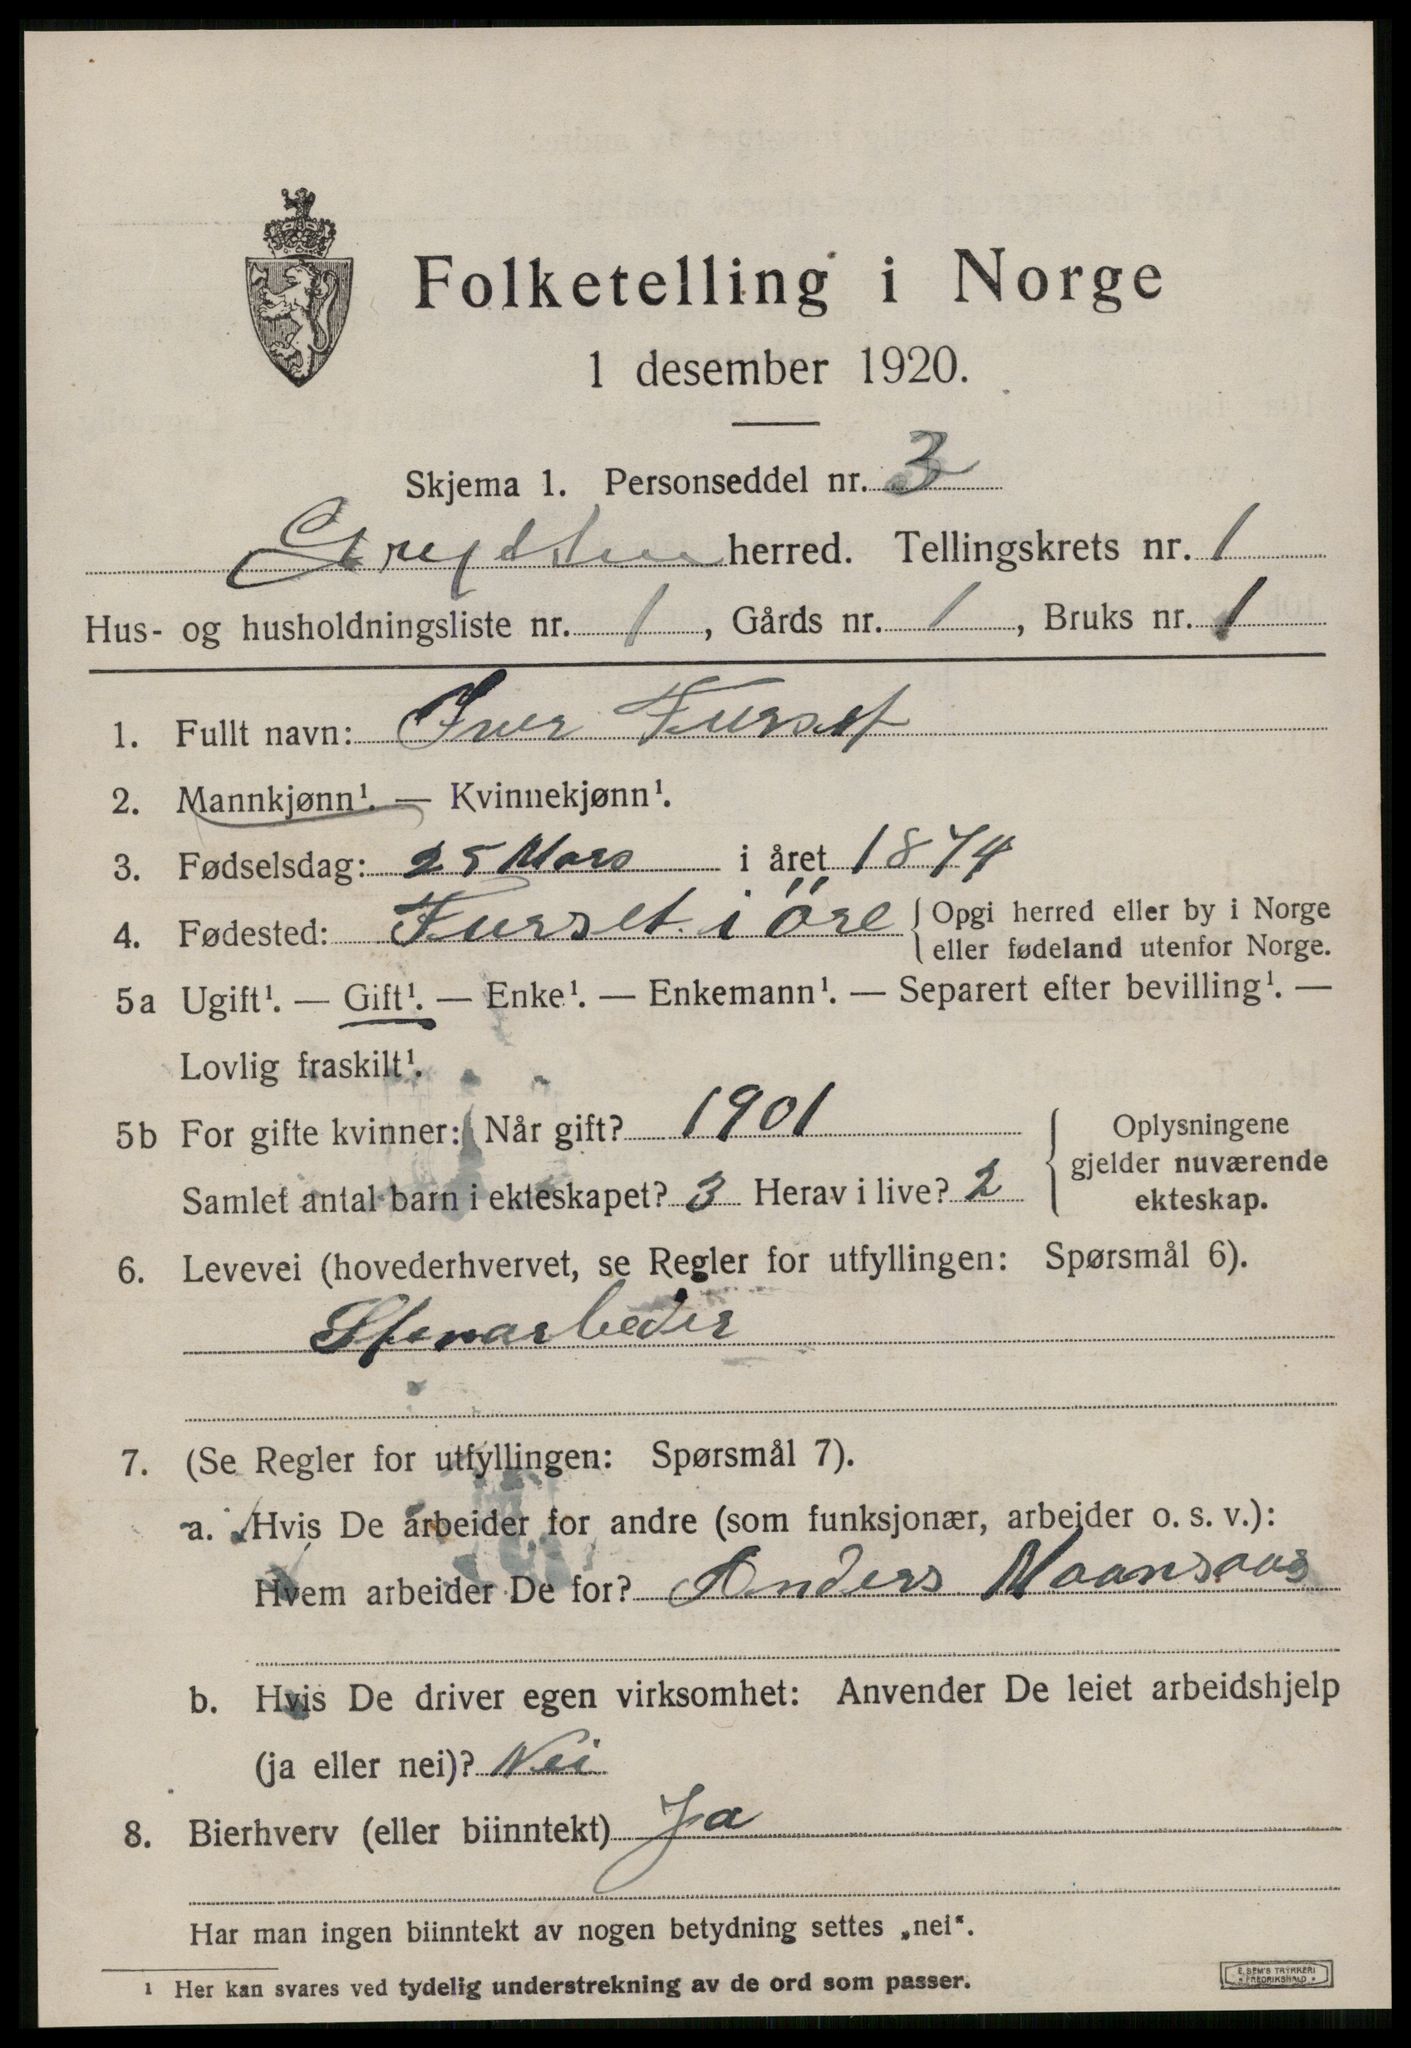 Folketelling i Norge
1 desember 1920.
Skjema 1. Personseddel nr. 3
Grytten herred. Tellingskrets nr. 1
Hus- og husholdningsliste nr. 1, Gårds nr. 1, Bruks nr. 1
1. Fullt navn: Iver Furset
2. Mannkjønn¹. — Kvinnekjønn¹.
3. Fødselsdag: 25 Mars i året 1874
4. Fødested: Furset i Öre { Opgi herred eller by i Norge
eller fødeland utenfor Norge.
5a Ugift¹. — Gift¹. — Enke¹. — Enkemann¹. — Separert efter bevilling¹. —
Lovlig fraskilt¹.
5b For gifte kvinner: Når gift? 1901
Samlet antal barn i ekteskapet? 3 Herav i live? 2
{ Oplysningene
gjelder nuværende
ekteskap.
6. Levevei (hovederhvervet, se Regler for utfyllingen: Spørsmål 6).
Stenarbeder
7. (Se Regler for utfyllingen: Spørsmål 7).
a. Hvis De arbeider for andre (som funksjonær, arbeider o. s. v.):
Hvem arbeider De for? Anders
b. Hvis De driver egen virksomhet: Anvender De leiet arbeidshjelp
(ja eller nei)? Nei
8. Bierhverv (eller biinntekt) Ja
Har man ingen biinntekt av nogen betydning settes „nei“.
¹ Her kan svares ved tydelig understrekning av de ord som passer.
E. SEM'S TRYKKERI
FREDRIKSHALD